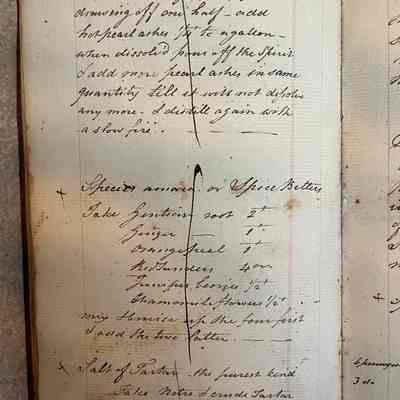 drawing off one half - add
hot pearl ashes 1/4 to a gallon -
when dissolv'd pour off the Spirit
& add more pearl ashes in same
quantity till it will not dissolve
any more - & distill again with
a slow fire. -
+ Species amara or Spice Bitters
Take Gentian root 2
Ginger 1
Orange peel 1
Red Sanders 4 oz
Juniper berries 1/2
Chamomile flowers 1/2
mix & bruise up the four first
& add the two latter. -
+ Salt of Tartar the purest kind
Take Nitre & crude Tartar
3 do